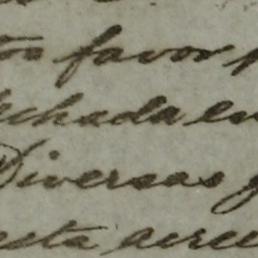 tos favor p
echada en
Diversas g
esta acree